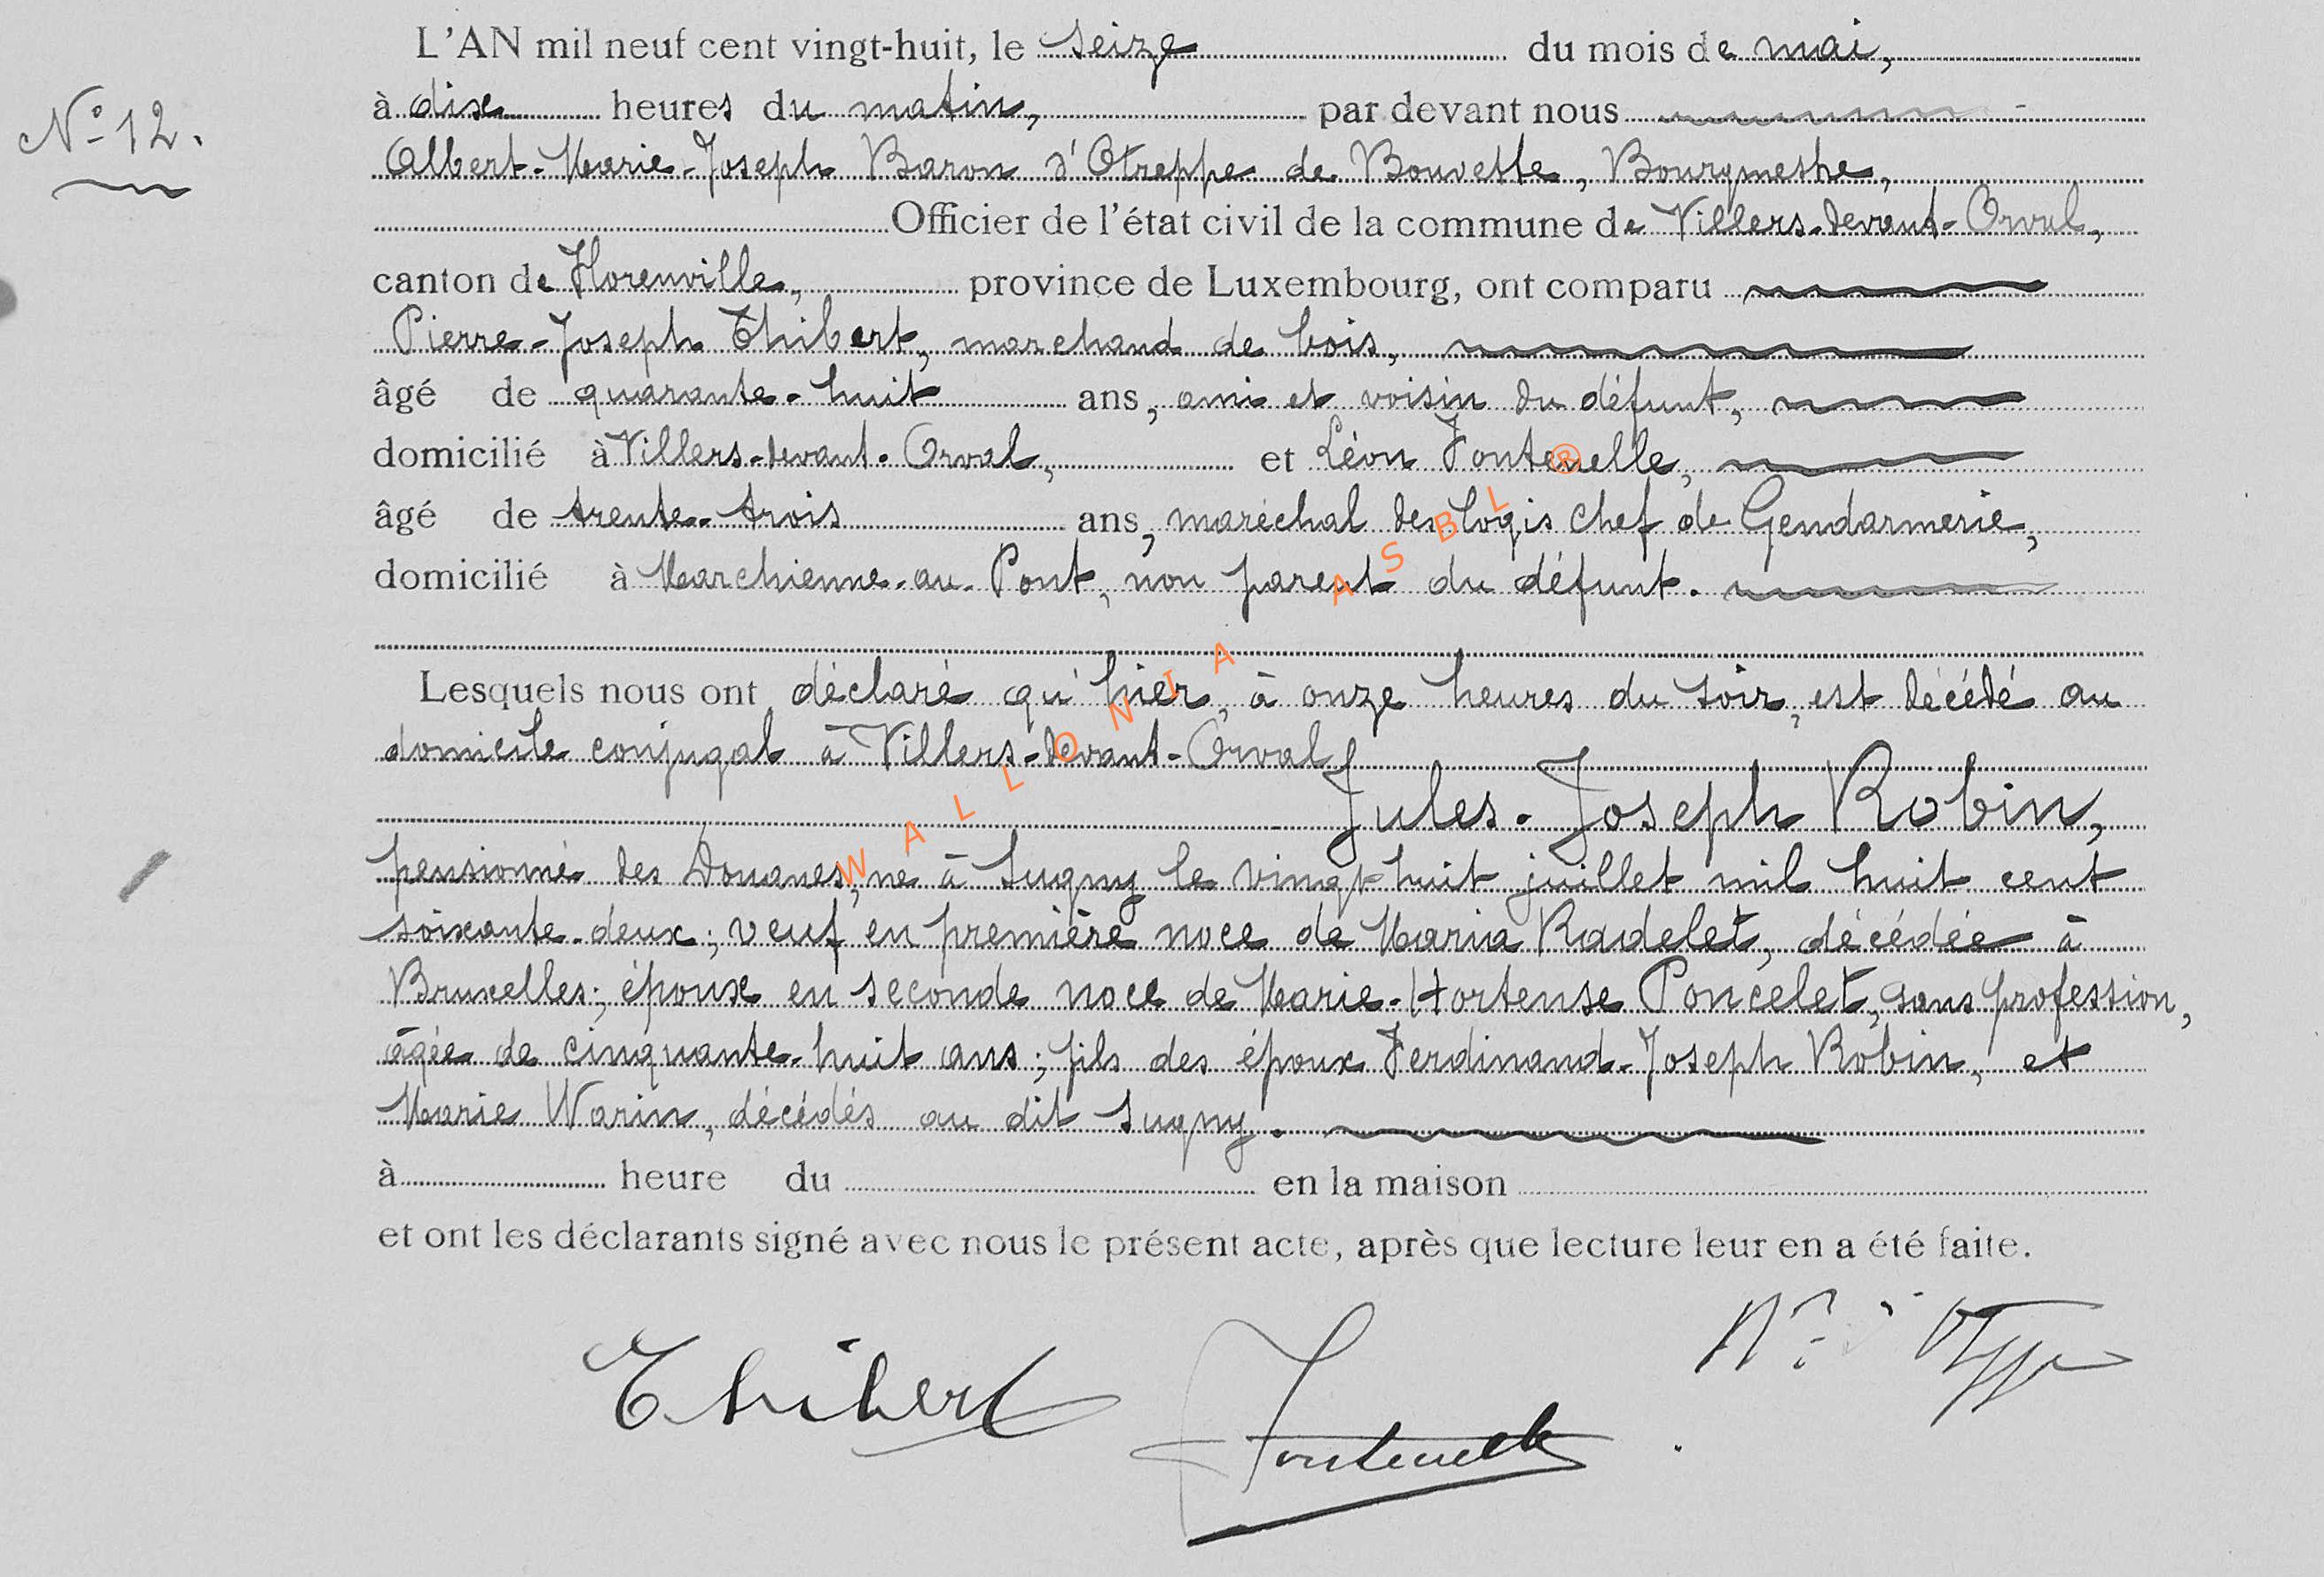 L'AN mil neuf cent vingt-huit, le seize du mois de mai,
N° 12.
à dix heures du matin, par devant nous
Albert-Marie-Joseph Baron d'Otreppe de Bouvette, Bourgmestre,
Officier de l'état civil de la commune de Villers-devant-Orval,
canton de Florenville, province de Luxembourg, ont comparu
Pierre-Joseph Thibert, marchand de bois,
âgé de quarante-huit ans, ami et voisin du défunt,
domicilié à Villers-devant-Orval, et Léon Fontenelle,
âgé de trente-trois ans, maréchal des logis chef de Gendarmerie,
domicilié à Marchienne-au-Pont, non parent du défunt.
Lesquels nous ont déclaré qu'hier, à onze heures du soir, est décédé au
domicile conjugal à Villers-devant-Orval,
Jules-Joseph Robin,
pensionné des Douanes, né à Sugny le vingt-huit juillet mil huit cent
soixante-deux; veuf en première noce de Maria Radelet, décédée à
Bruxelles; époux en seconde noce de Marie-Hortense Poncelet, sans profession,
âgée de cinquante-huit ans; fils des époux Ferdinand-Joseph Robin, et
Marie Warin, décédés au dit Sugny.
à heure du en la maison
et ont les déclarants signé avec nous le présent acte, après que lecture leur en a été faite.
Thibert
Fontenelle
WALLONIA ASBL ®